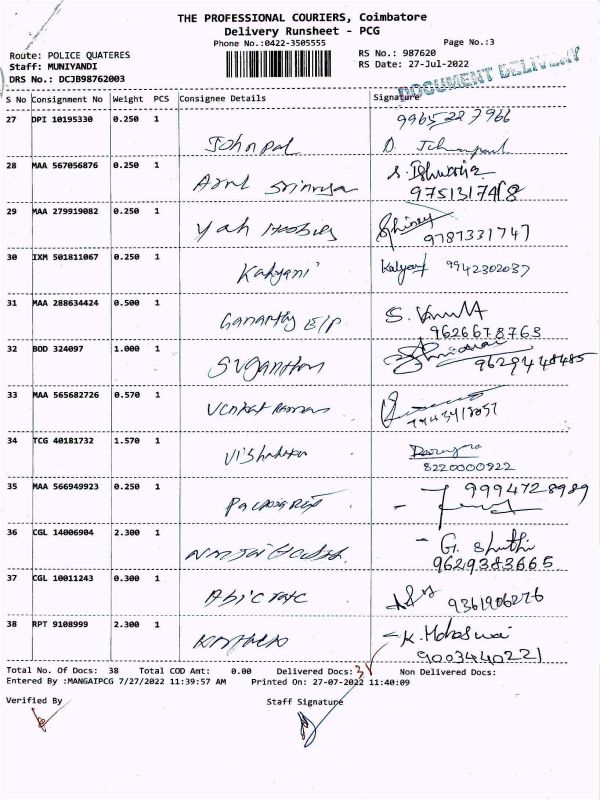 THE PROFESSIONAL COURIERS, Coimbatore
Delivery Runsheet - PCG
Phone No.:0422-3505555 Page No.:3
Route: POLICE QUATERES RS No.: 987620
Staff: MUNIYANDI RS Date: 27-Jul-2022
DRS No.: DCJB98762003
DOCUMENT DELIVERY
S No Consignment No Weight PCS Consignee Details Signature
27 DPI 10195330 0.250 1
Johnpal
28 MAA 567056876 0.250 1
Arul Srinivasa S. Ishwaria
29 MAA 279919082 0.250 1
Yah Hobbies
9787331747
30 IXM 501811067 0.250 1
Kalyani Kalyani 9942302037
31 MAA 288634424 0.500 1
E/P 9626678763
32 BOD 324097 1.000 1
Suganthan 9629448485
33 MAA 565682726 0.570 1
Venkat Raman
34 TCG 40181732 1.570 1
8220000922
35 MAA 566949923 0.250 1
9994728989
36 CGL 14006904 2.300 1
G. Shuthi
9629383665
37 CGL 10011243 0.300 1
9361906276
38 RPT 9108999 2.300 1
K.
9003440221
Total No. Of Docs: 38 Total COD Amt: 0.00 Delivered Docs: Non Delivered Docs:
Entered By :MANGAIPCG 7/27/2022 11:39:57 AM Printed On: 27-07-2022 11:40:09
Verified By Staff Signature